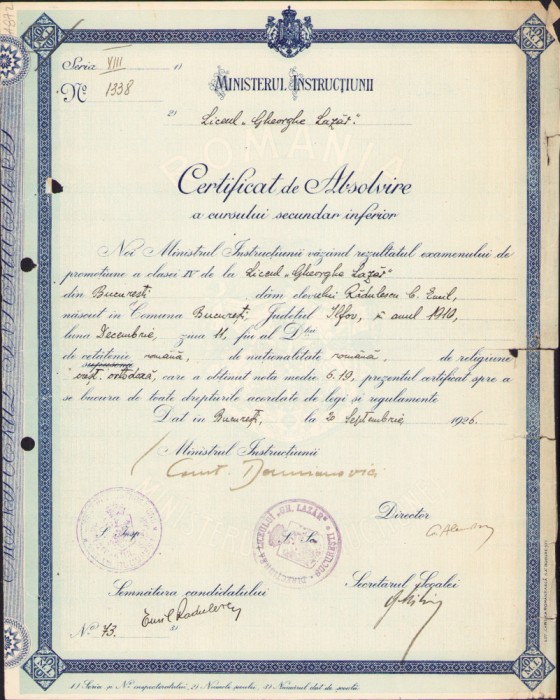 Seria VIII 1)
No 1338
MINISTERUL INSTRUCŢIUNII
2) Liceul „Gheorghe Lazăr"
ROMANIA
Certificat de Absolvire
a cursului secundar inferior
Noi Ministrul Instrucţiunii văzând rezultatul examenului de
promoţiune a clasei IV de la Liceul „Gheorghe Lazăr"
din Bucureşti dăm elevului Rădulescu C. Emil,
născut în Comuna Bucureşti, Judeţul Ilfov, în anul 1910,
luna Decembrie, ziua 11, fiu al D
de cetăţenie română, de naţionalitate română, de religiune
creşt. ortodoxă, care a obţinut nota medie 6.19, prezentul certificat spre a
se bucura de toate drepturile acordate de legi şi regulamente
Dat în Bucureşti, la 20 Septembrie 1926.
Ministrul Instrucţiunii
L. S. Insp.
LICEULUI „GH. LAZĂR"
BUCUREŞTI
L. S. Lic.
Director
Semnătura candidatului
Secretarul Şcoalei
Emil Radulescu
No. 73. 3)
1) Seria şi No inspectoratului, 2) Numele şcolii, 3) Numărul dat de şcoală